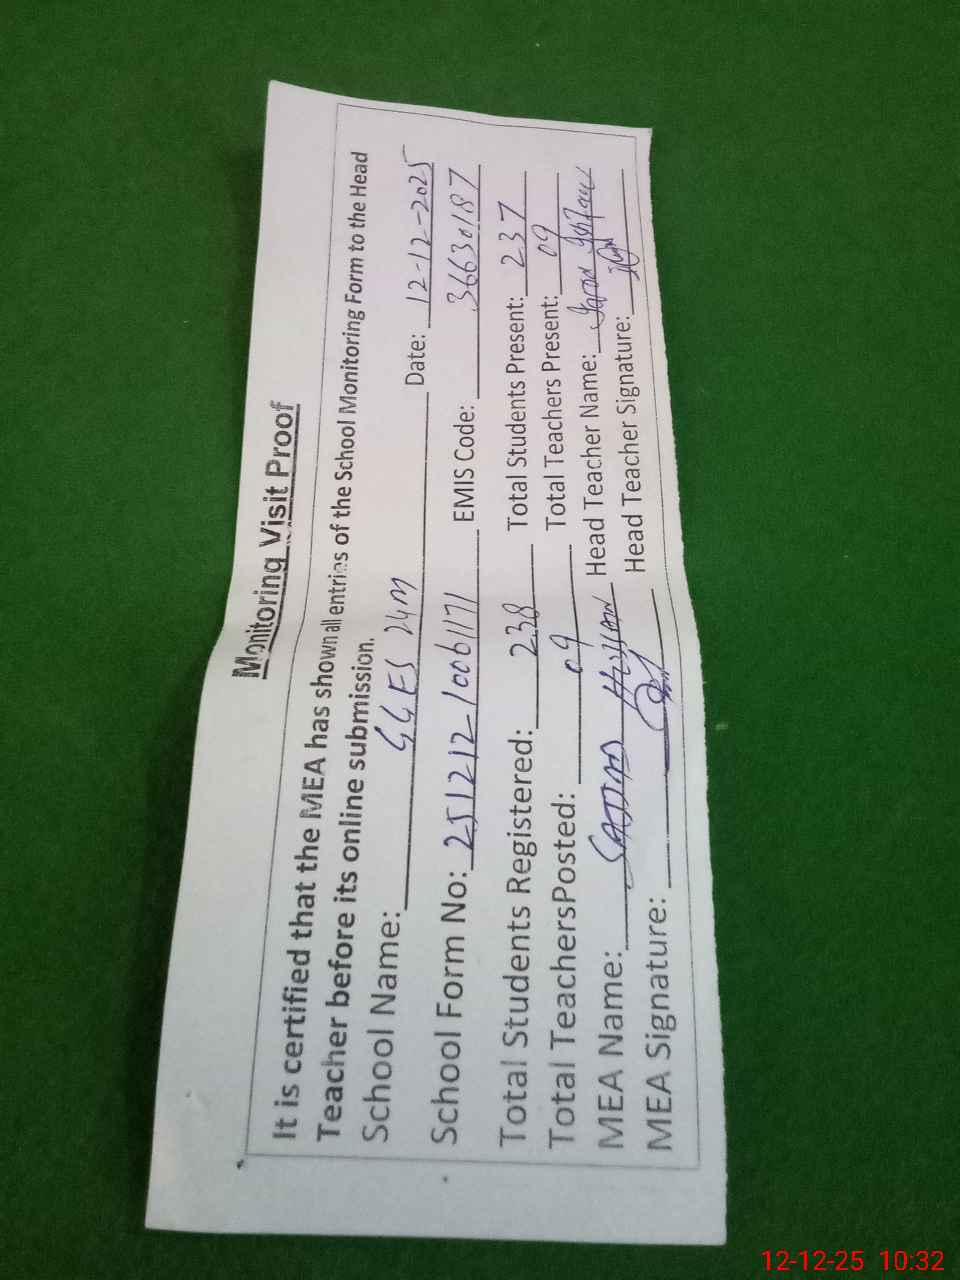 Monitoring Visit Proof
It is certified that the MEA has shown all entries of the School Monitoring Form to the Head
Teacher before its online submission.
School Name: GGES 24M Date: 12-12-2025
School Form No: 251212-10061171 EMIS Code: 36630187
Total Students Registered: 238 Total Students Present: 237
Total TeachersPosted: 09 Total Teachers Present: 09
MEA Name: SAJJAD HUSSAIN Head Teacher Name:
MEA Signature: Head Teacher Signature:
12-12-25 10:32